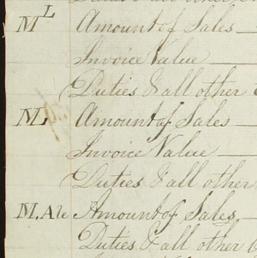 M L Amount of Sales
Invoice Value
Duties & all other
ML Amount of Sales
Invoice Value
Duties & all other
M, Ale Amount of Sales
Duties & all other